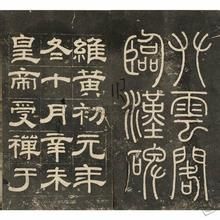 雲閣
臨漢碑
維黃初元年
冬十月辛未
皇帝受禪于